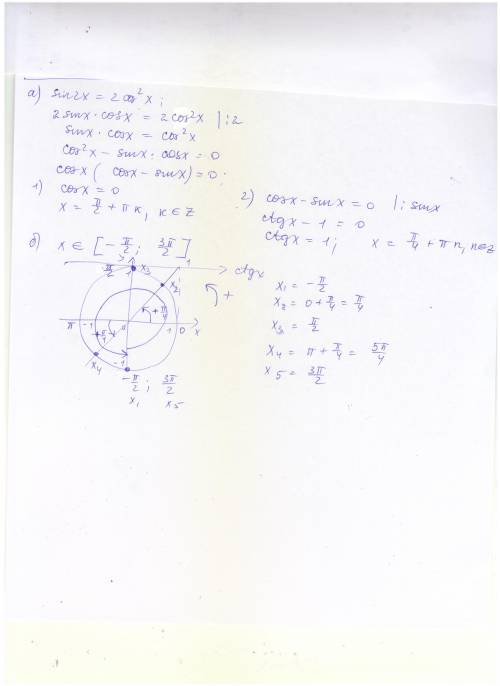 а) sin2x = 2cos²x ;
2 sinx · cosx = 2cos²x | : 2
sinx · cosx = cos²x
cos²x − sinx · cosx = 0
cosx ( cosx − sinx) = 0 .
1) cosx = 0
x = π/2 + πк, к ∈ Z
2) cosx − sinx = 0 | : sinx
ctgx − 1 = 0
ctgx = 1 ; x = π/4 + πn, n∈Z
б) x ∈ [ − π/2 ; 3π/2 ]
π/2 1 x₃ 1 ctgx
x₂
+
π −1 π/4 0 + π/4 1 0 x
x₄ −1
− π/2 ; 3π/2
x₁ x₅
x₁ = − π/2
x₂ = 0 + π/4 = π/4
x₃ = π/2
x₄ = π + π/4 = 5π/4
x₅ = 3π/2